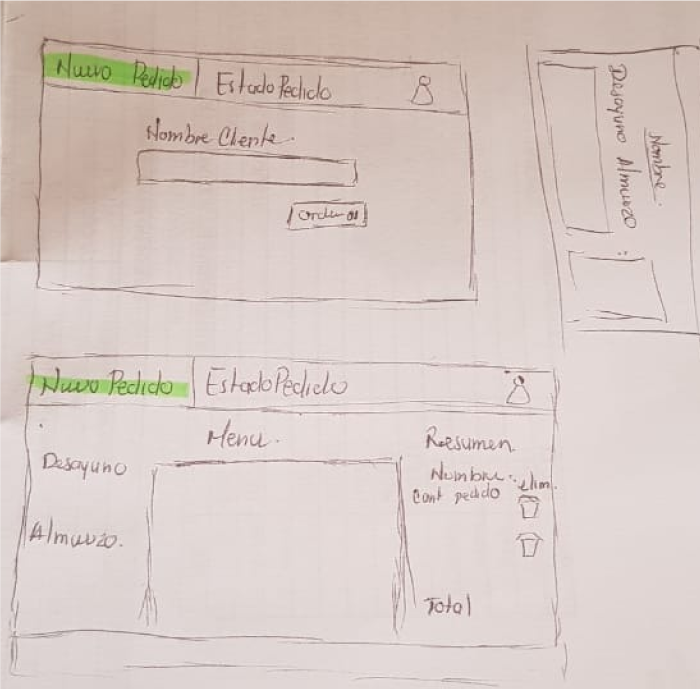 Nuevo Pedido
Estado Pedido
Nombre Cliente.
Ordenar
Nombre.
Desayuno Almuerzo
Nuevo Pedido
Estado Pedido
Menu.
Resumen
Desayuno
Nombre.
elim.
Cant pedido
Almuerzo.
Total